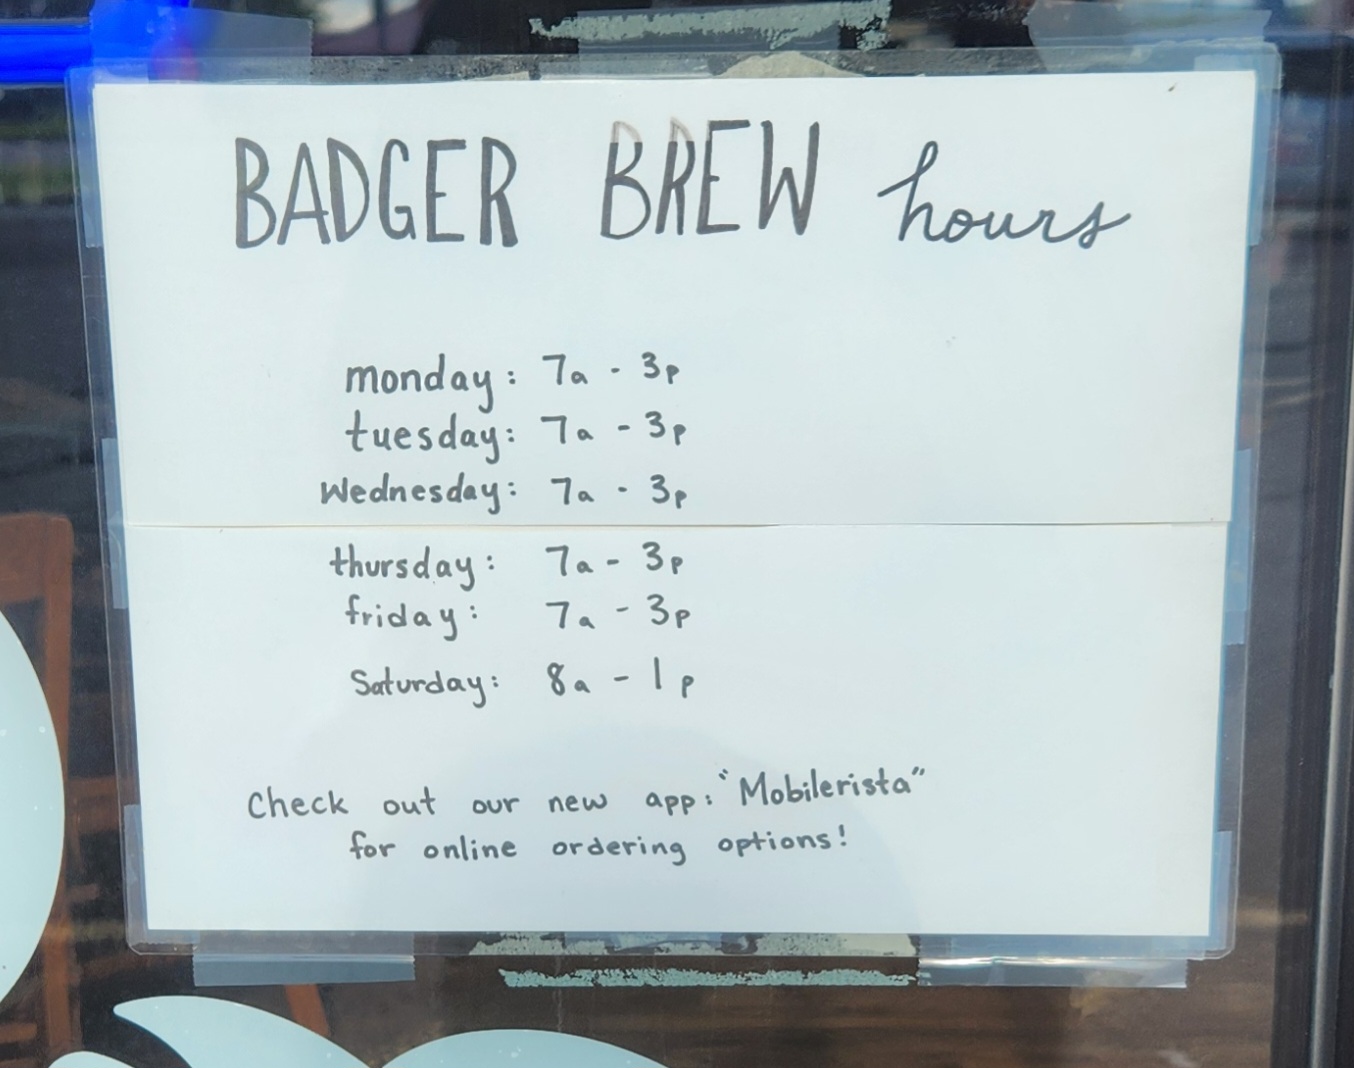 BADGER BREW hours
monday: 7a - 3p
tuesday: 7a - 3p
Wednesday: 7a - 3p
thursday: 7a - 3p
friday: 7a - 3p
Saturday: 8a - 1p
Check out our new app: "Mobilerista"
for online ordering options!